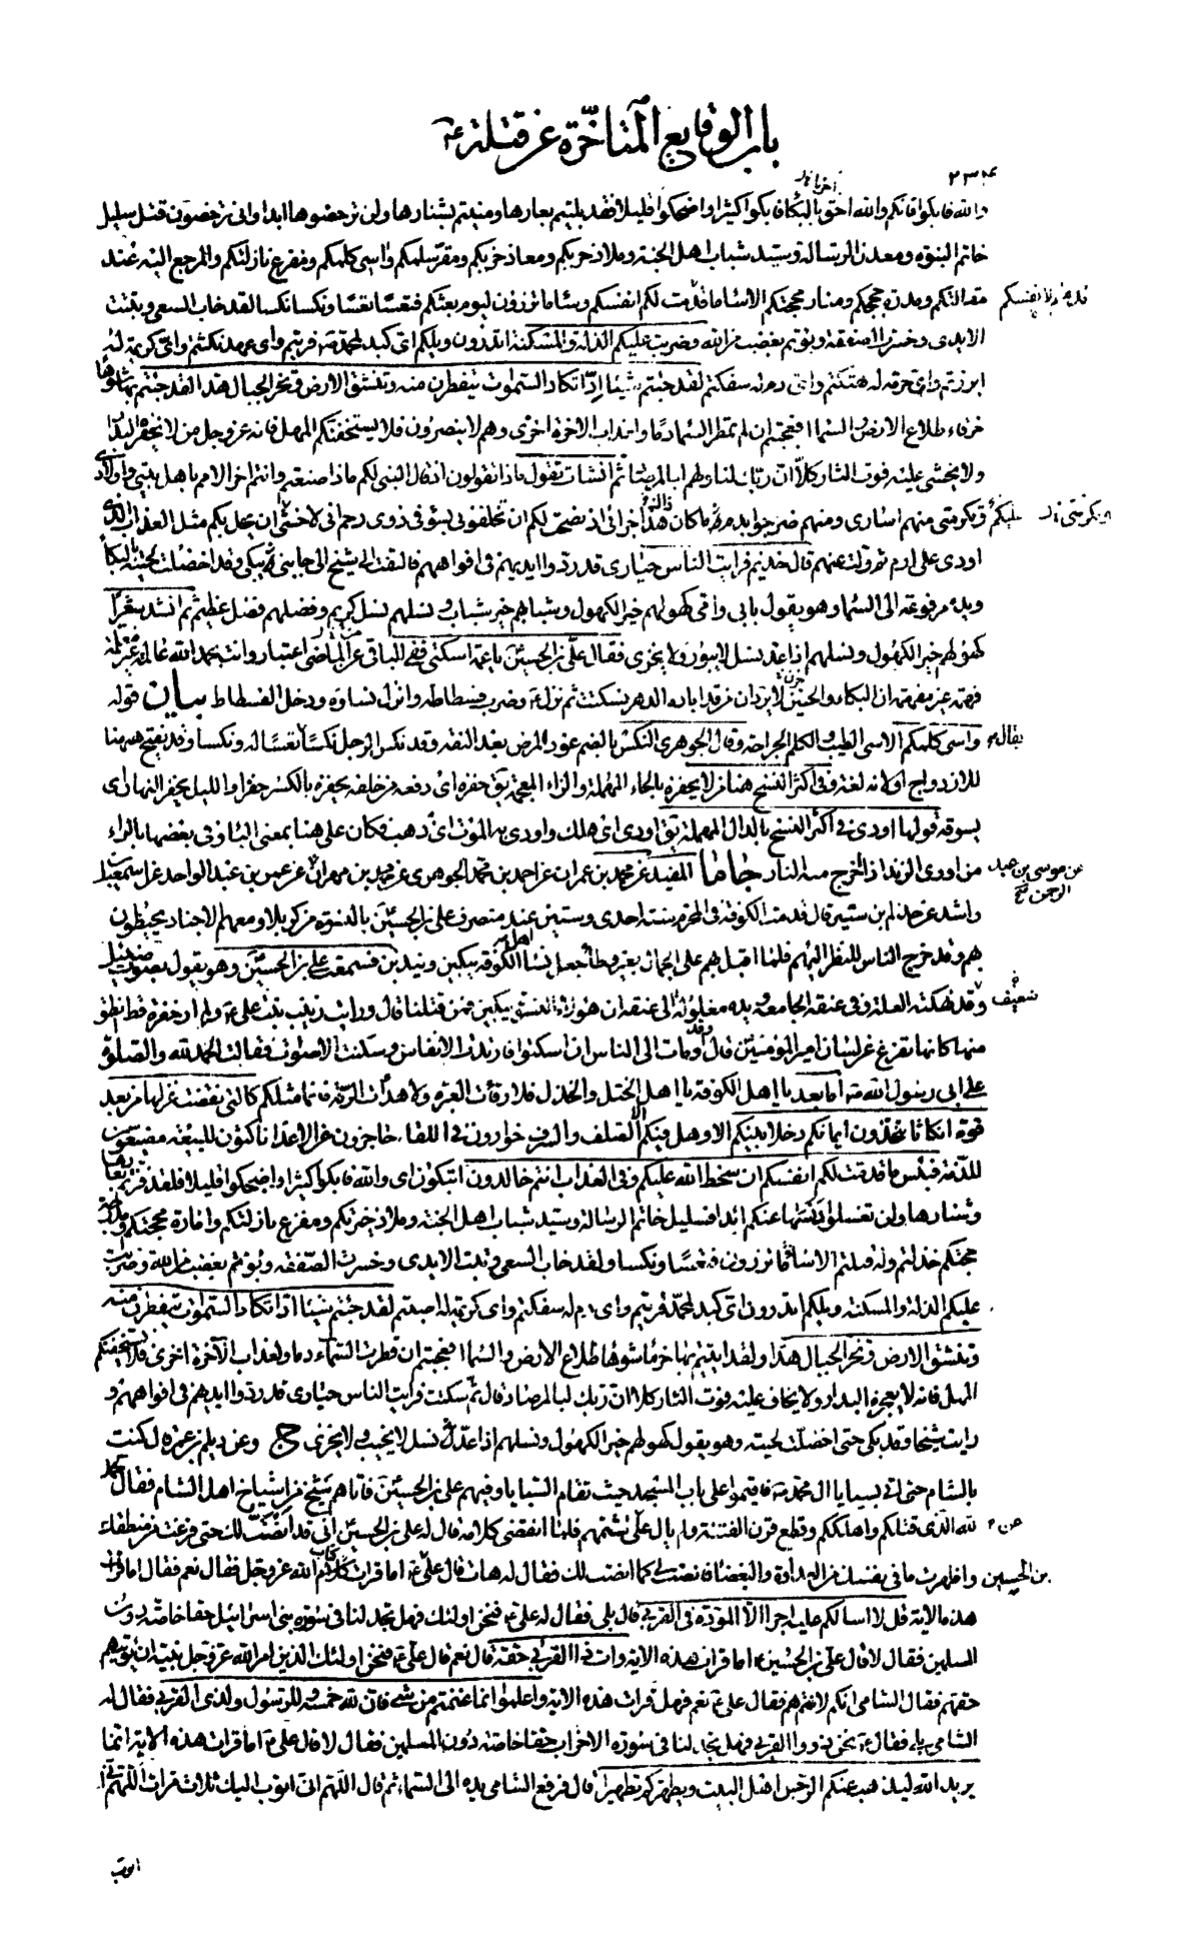 باب الوقايع المتاخّرة عن قتله ع
٢٣٤
والله فابكوا فانكم والله احق بالبكاء فابكوا كثيرا واضحكوا قليلا فقد بليتم بعارها ومنيتم بشنارها ولن ترحضوها ابدا وانى ترحضون قتل سليل
خاتم النبوة ومعدن الرسالة وسيد شباب اهل الجنة وملاذ حربكم ومعاذ حزبكم ومقر سلمكم واسى كلمكم ومفزع نازلتكم والمرجع اليه عند
مقالتكم ومدرة حججكم ومنار محجتكم الا ساء ما قدمت لكم انفسكم وساء ما تزرون ليوم بعثكم فتعسا تعسا ونكسا نكسا لقد خاب السعى وتبت
الايدى وخسرت الصفقة وبؤتم بغضب من الله وضربت عليكم الذلة والمسكنة اتدرون ويلكم اى كبد لمحمد ص فريتم واى عهد نكثتم واى كريمة له
ابرزتم واى حرمة له هتكتم واى دم له سفكتم لقد جئتم شيئا ادّا تكاد السموات يتفطرن منه وتنشق الارض وتخر الجبال هدا لقد جئتم بها شوهاء
خرقاء طلاع الارض والسماء افعجبتم ان لم تمطر السماء دما ولعذاب الاخرة اخزى وهم لا ينصرون فلا يستخفنكم المهل فانه عز وجل من لا يحفزه البدار
ولا يخشى عليه فوت الثار كلا ان ربك لنا ولهم لبالمرصاد ثم انشات تقول ماذا تقولون اذ قال النبى لكم ماذا صنعتم وانتم اخر الامم باهل بيتى واولادى
وتكرمتى منهم اسارى ومنهم ضرجوا بدم ما كان هذا جزائى اذ نصحت لكم ان تخلفونى بسوء فى ذوى رحمى انى لاخشى ان يحل بكم مثل العذاب الذى
اودى على ارم ثم ولت عنهم قال حذيم فرايت الناس حيارى قد ردوا ايديهم فى افواههم فالتفت الى شيخ الى جانبى يبكى وقد اخضلت لحيته بالبكاء
ويده مرفوعة الى السماء وهو يقول بابى وامى كهولهم خير الكهول وشبابهم خير شباب ونسلهم نسل كريم وفضلهم فضل عظيم ثم انشد شعرا
كهولهم خير الكهول ونسلهم اذا عد نسل لا يبور ولا يخزى فقال على بن الحسين يا عمة اسكتى ففى الباقى عن الماضى اعتبار وانت بحمد الله عالمة غير معلمة
فهمة غير مفهمة ان البكاء والحنين لا يردان من قد اباده الدهر فسكتت ثم نزل ع وضرب فسطاطه وانزل نساءه ودخل الفسطاط بيان قوله
واسى كلمكم الاسى الطبيب والكلم الجراحة وقال الجوهرى النكس بالضم عود المرض بعد النقه وقد نكس الرجل نكسا يقال تعسا له ونكسا وقد يفتح ههنا
للازدواج او لانه لغة وفى اكثر النسخ هنا من لا يحفزه بالحاء المهملة والزاء المعجمة يق حفزه اى دفعه من خلفه يحفزه بالكسر حفزا والليل يحفز النهار اى
يسوقه قولها اودى فى اكثر النسخ بالدال المهملة يق اودى اى هلك واودى به الموت اى ذهب فكان على هنا بمعنى الباء وفى بعضها بالراء
من اورى الزند اذا اخرج منه النار جا ما المفيد عن محمد بن عمران عن احمد بن محمد الجوهرى عن محمد بن مهران عن موسى بن عبد الرحمن عن عمر بن عبد الواحد عن اسمعيل بن
راشد عن حذلم بن ستير قال قدمت الكوفة فى المحرم سنة احدى وستين عند منصرف على بن الحسين بالنسوة من كربلا ومعهم الاجناد يحيطون
بهم وقد خرج الناس للنظر اليهم فلما اقبل بهم على الجمال بغير وطاء جعل نساء اهل الكوفة يبكين ويندبن فسمعت على بن الحسين وهو يقول بصوت ضئيل
وقد نهكته العلة وفى عنقه الجامعة ويده مغلولة الى عنقه ان هؤلاء النسوة يبكين فمن قتلنا قال ورايت زينب بنت على ع ولم ار خفرة قط انطق
منها كانها تفرغ عن لسان امير المؤمنين قال وقد اومات الى الناس ان اسكتوا فارتدت الانفاس وسكنت الاصوات فقالت الحمد لله والصلوة
على ابى رسول الله ص اما بعد يا اهل الكوفة يا اهل الختل والخذل فلا رقات العبرة ولا هدات الرنة فانما مثلكم كالتى نقضت غزلها من بعد
قوة انكاثا تتخذون ايمانكم دخلا بينكم الا وهل فيكم الا الصلف والشرف خوارون فى اللقاء عاجزون عن الاعداء ناكثون للبيعة مضيعون
للذمة فبئس ما قدمت لكم انفسكم ان سخط الله عليكم وفى العذاب انتم خالدون اتبكون اى والله فابكوا كثيرا واضحكوا قليلا فلقد فزتم بعارها
وشنارها ولن تغسلوا دنسها عنكم ابدا فسليل خاتم الرسالة وسيد شباب اهل الجنة وملاذ خيرتكم ومفزع نازلتكم وامارة محجتكم ومدرجة
حجتكم خذلتم وله قتلتم الا ساء ما تزرون فتعسا ونكسا ولقد خاب السعى وتبت الايدى وخسرت الصفقة وبؤتم بغضب من الله وضربت
عليكم الذلة والمسكنة ويلكم اتدرون اى كبد لمحمد فريتم واى دم له سفكتم واى كريمة له اصبتم لقد جئتم شيئا ادّا تكاد السموات يتفطرن منه
وتنشق الارض وتخر الجبال هدا ولقد اتيتم بها خرماء شوهاء طلاع الارض والسماء افعجبتم ان قطرت السماء دما ولعذاب الآخرة اخزى فلا يستخفنكم
المهل فانه لا يعجزه البدار ولا يخاف عليه فوت الثار كلا ان ربك لبالمرصاد قال ثم سكتت فرايت الناس حيارى قد ردوا ايديهم فى افواههم و
رايت شيخا وقد بكى حتى اخضلت لحيته وهو يقول كهولهم خير الكهول ونسلهم اذا عد نسل لا يخيب ولا يخزى ج وعن ديلم بن عمر قال كنت
بالشام حتى اتى بسبايا ال محمد ص فاقيموا على باب المسجد حيث تقام السبايا وفيهم على بن الحسين فاتاهم شيخ من اشياخ اهل الشام فقال الحمد
لله الذى قتلكم واهلككم وقطع قرن الفتنة ولم يال عن شتمهم فلما انقضى كلامه قال له على بن الحسين انى قد انصت لك حتى فرغت من منطقك
واظهرت ما فى نفسك من العداوة والبغضاء فانصت لى كما انصت لك فقال له هات قال على ع اما قرات كتاب الله عز وجل فقال نعم فقال اما قرات
هذه الاية قل لا اسالكم عليه اجرا الا المودة فى القربى قال بلى فقال له على ع فنحن اولئك فهل تجد لنا فى سورة بنى اسرائيل حقا خاصة دون
المسلمين فقال لا قال على بن الحسين ع اما قرات هذه الاية وات ذا القربى حقه قال نعم قال على ع فنحن اولئك الذين امر الله عز وجل نبيه ان يؤتيهم
حقهم فقال الشامى انكم لانتم هم فقال على ع نعم فهل قرات هذه الاية واعلموا انما غنمتم من شىء فان لله خمسه وللرسول ولذى القربى فقال له
الشامى بلى فقال ع نحن ذوو القربى فهل تجد لنا فى سورة الاحزاب حقا خاصة دون المسلمين فقال لا قال على ع اما قرات هذه الاية انما
يريد الله ليذهب عنكم الرجس اهل البيت ويطهركم تطهيرا قال فرفع الشامى يده الى السماء ثم قال اللهم انى اتوب اليك ثلاث مرات اللهم انى
اتوب